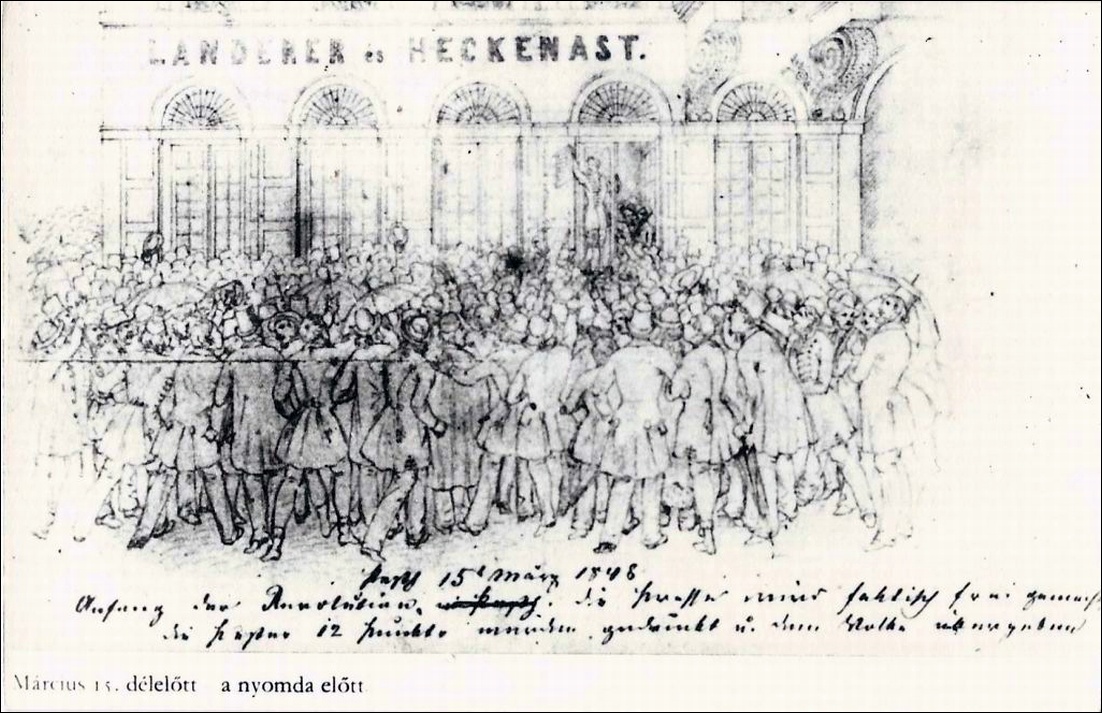 LANDERER és HECKENAST.
Pesth 15t März 1848
Anfang der Revolution. die Presse wird faktisch frei gemacht
die Pester 12 Punkte wurden gedruckt u. dem Volke übergeben
Március 15. délelőtt a nyomda előtt